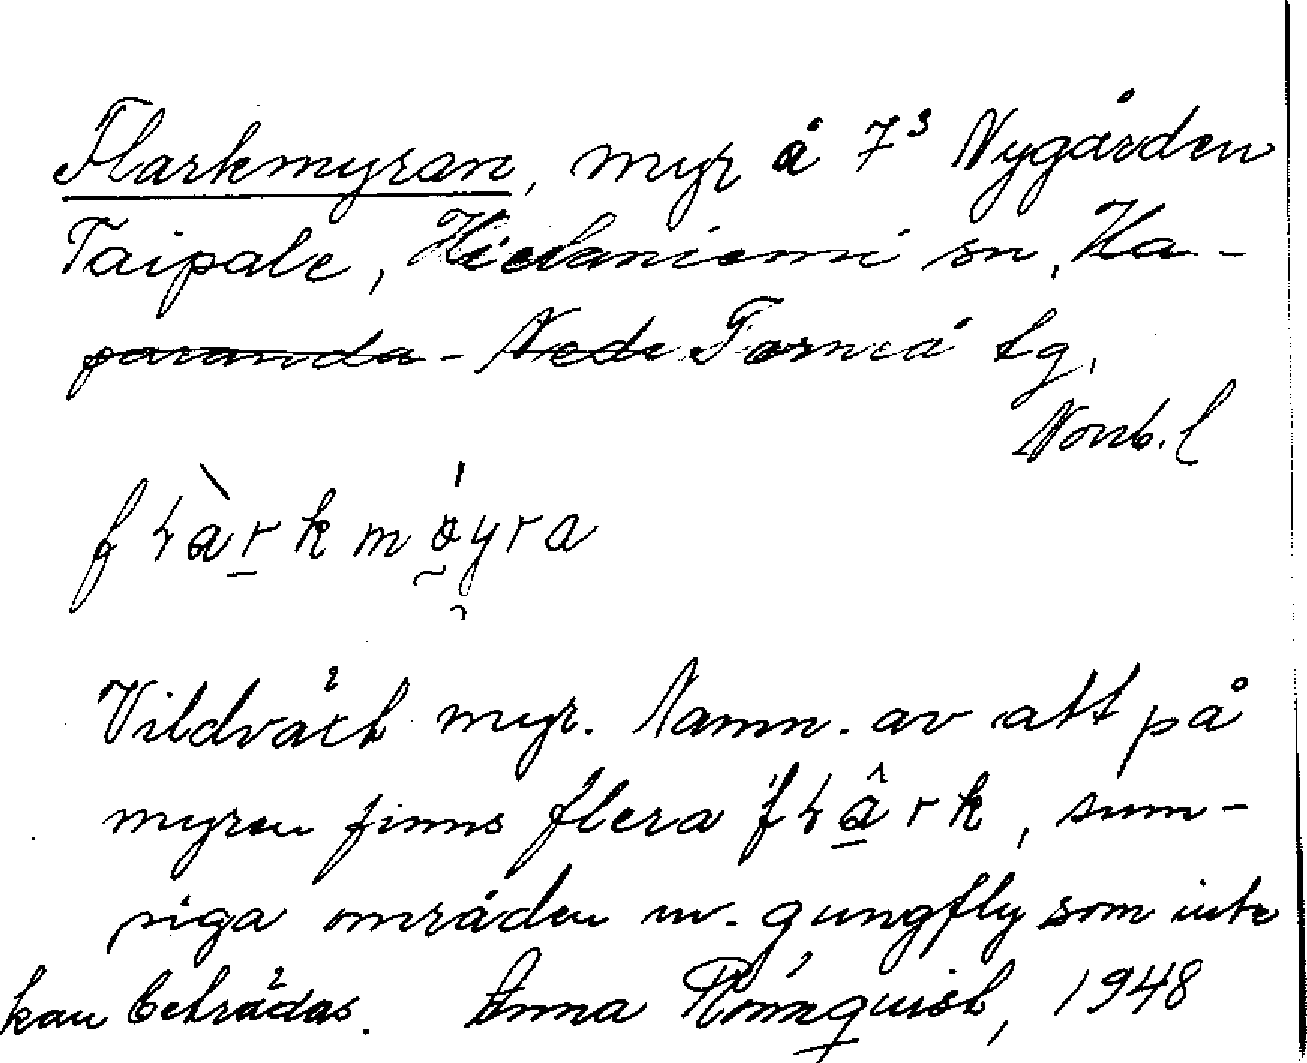 Flarkmyran, myr å 7³ Nygården
Taipale, Hietaniemi sn, Ha-
paranda - Nede Torneå tg,
Norrb. l
Vildväxt myr. Namn. av att på
myren finns flera fɽârk, sum-
piga områden m. gungfly som inte
kan beträdas. Anna Rönnquist, 1948